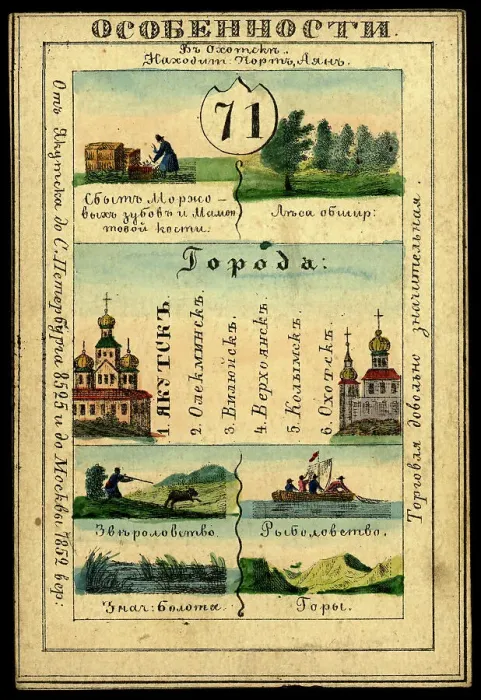 ОСОБЕННОСТИ.
Въ Охотскѣ.
Находит: Портъ, Аянъ.
71
Сбытъ Моржо-
выхъ зубовъ и Мамон
товой кости.
Лѣса обшир:
Города:
1. ЯКУТСКЪ.
2. Олекминскъ.
3. Вилюйскъ.
4. Верхоянскъ.
5. Колымскъ.
6. Охотскъ.
Звѣроловство.
Рыболовство.
Знач: болота.
Горы.
Отъ Якутска до С. Петербурга 8525 и до Москвы 7852 вер:
Торговля довольно значительная.